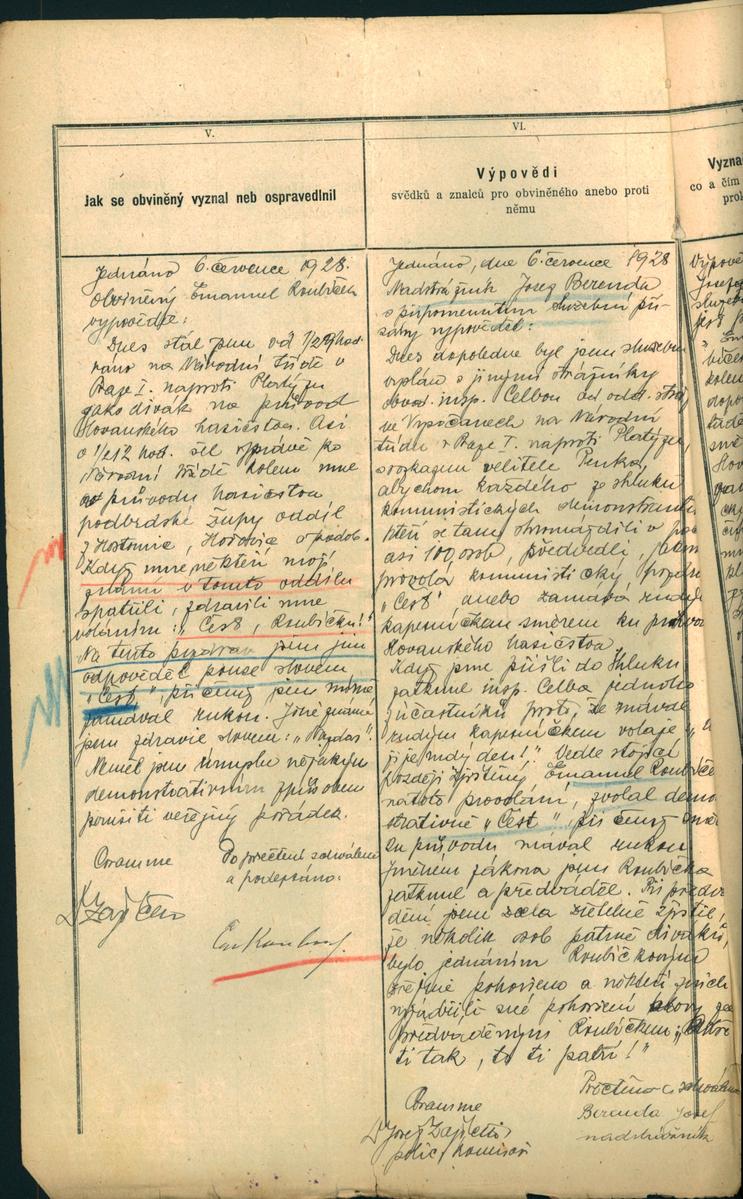 V.
Jak se obviněný vyznal neb ospravedlnil
Jednáno 6. července 1928.
Obviněný Emanuel Roubíček
vypovídá:
Dnes stál jsem od 1/2 9 hod
ráno na Národní třídě v
Praze I. naproti Platýzu
jako divák na průvod
Slovanského hasičstva. Asi
o 1/2 12 hod. šel správě po
Národní třídě kolem mne
průvodu hasičstva
podbrdské župy oddíl
z Hostomic, Hořovic a podob.
Když mne někteří moji
známí v tomto oddílu
spatřili, zdravili mne
voláním: "Čest, Roubíčku!"
Na tento pozdrav jsem jim
odpověděl pouze slovem
"Čest", při čemž jsem mírně
zamával rukou. Jiné známé
jsem zdravil slovem: "Nazdar".
Neměl jsem úmyslu nějakým
demonstrativním způsobem
porušiti veřejný pořádek.
Po přečtení schváleno
a podepsáno.
VI.
Výpovědi
svědků a znalců pro obviněného anebo proti
němu
Jednáno, dne 6. července 1928
Nadstrážník Josef Berenda
s připomenutím služební pří-
sahy vypověděl:
Dnes dopoledne byl jsem služebně
vyslán s jinými strážníky
obvod. insp. Celbou od odd. stráž
ve Vysočanech na Národní
třídu v Praze I. naproti Platýzu,
s rozkazem velitele Penka,
abychom každého ze shluku
komunistických demonstrantů
kteří se tam shromáždili v poč
asi 100 osob, předvedli,
provolá komunisticky pozdrav
"Čest" anebo zamává rudým
kapesníčkem směrem ku průvodu
Slovanského hasičstva
Když jsme přišli do shluku
zatknul insp. Celba jednoho
účastníků proto, že mával
rudým kapesníčkem volaje
"ji je rudý den!". Vedle stojící
později zjištěný Emanuel Roubíček
na toto provolání, zvolal demon
strativně "Čest", při čemž směrem
ku průvodu mával rukou.
Jménem zákona jsem Roubíčka
zatknul a předváděl. Při předvá
dění jsem zcela zřetelně zjistil,
že několik osob patrně diváků,
bylo jednáním Roubíčkovým
zřejmě pohoršeno a někteří z nich
vyjádřili své pohoršení slovy za
předváděným Roubíčkem:
ti tak, to ti patří!"
Přečteno a schváleno
Berenda Josef
nadstrážník
Josef Zajíček
polic. komisař
Vyzna
co a čím
prok